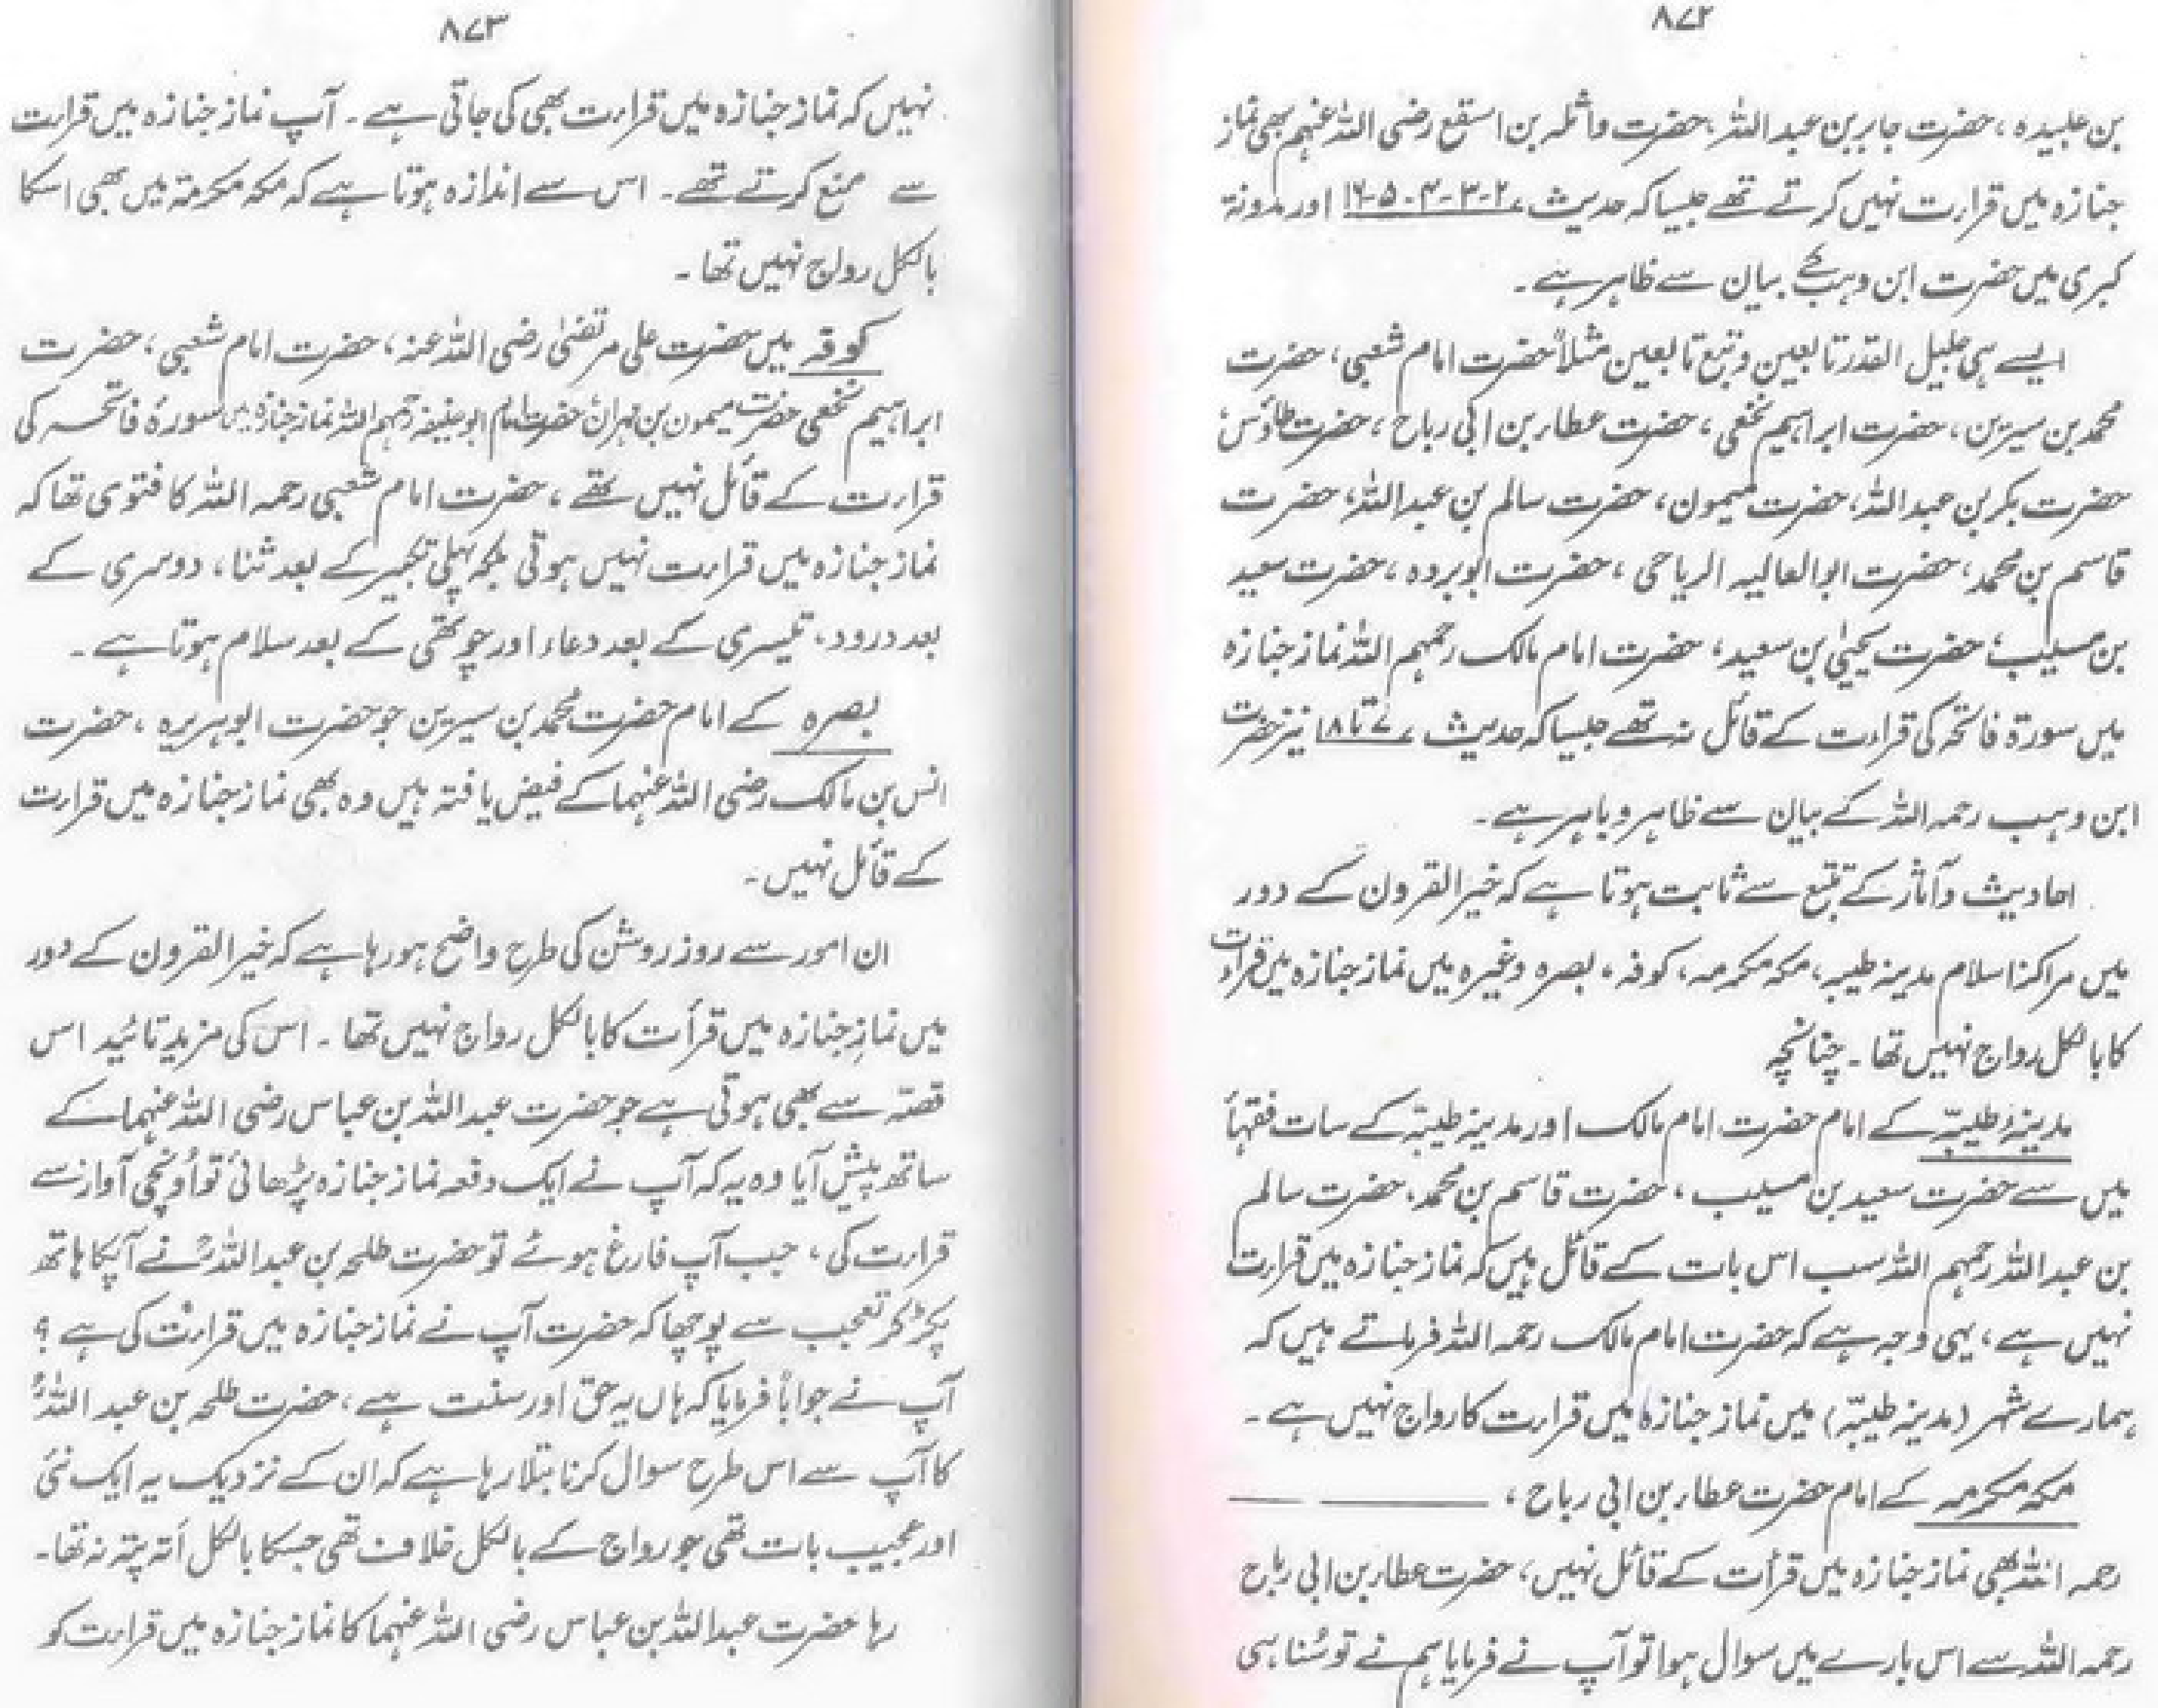 ۸۷۲
بن عبیدہ ، حضرت جابر بن عبد اللہ ، حضرت واثلہ بن اسقع رضی اللہ عنہم بھی نماز
جنازہ میں قرارت نہیں کرتے تھے جیسا کہ حدیث ۲-۳-۴-۵-۱۶ اور مدونۃ
کبری میں حضرت ابن وہب کے بیان سے ظاہر ہے ۔
ایسے ہی جلیل القدر تابعین و تبع تابعین مثلاً حضرت امام شعبی ، حضرت
محمد بن سیرین ، حضرت ابراہیم نخعی ، حضرت عطار بن ابی رباح ، حضرت طاؤس
حضرت بکر بن عبد اللہ ، حضرت میمون ، حضرت سالم بن عبد اللہ ، حضرت
قاسم بن محمد ، حضرت ابوالعالیہ الریاحی ، حضرت ابو بردہ ، حضرت سعید
بن مسیب ، حضرت یحییٰ بن سعید ، حضرت امام مالک رحمہم اللہ نماز جنازہ
میں سورۃ فاتحہ کی قراءت کے قائل نہ تھے جیسا کہ حدیث ۷ تا ۱۸ نیز حضرت
ابن وہب رحمہ اللہ کے بیان سے ظاہر و باہر ہے ۔
احادیث و آثار کے تتبع سے ثابت ہوتا ہے کہ خیر القرون کے دور
میں مراکز اسلام مدینہ طیبہ ، مکہ مکرمہ ، کوفہ ، بصرہ وغیرہ میں نماز جنازہ میں قراءت
کا بالکل رواج نہیں تھا ۔ چنانچہ
مدینۂ طیبہ کے امام حضرت امام مالک اور مدینہ طیبہ کے سات فقہاء
میں سے حضرت سعید بن مسیب ، حضرت قاسم بن محمد ، حضرت سالم
بن عبد اللہ رحمہم اللہ سب اس بات کے قائل ہیں کہ نماز جنازہ میں قرارت
نہیں ہے ، یہی وجہ ہے کہ حضرت امام مالک رحمہ اللہ فرماتے ہیں کہ
ہمارے شہر (مدینہ طیبہ) میں نماز جنازہ میں قرارت کا رواج نہیں ہے ۔
مکہ مکرمہ کے امام حضرت عطار بن ابی رباح ،
رحمہ اللہ بھی نماز جنازہ میں قرأت کے قائل نہیں ، حضرت عطار بن ابی رباح
رحمہ اللہ سے اس بارے میں سوال ہوا تو آپ نے فرمایا ہم نے تو سُنا ہی
۸۷۳
نہیں کہ نماز جنازہ میں قرارت بھی کی جاتی ہے ۔ آپ نماز جنازہ میں قرارت
سے منع کرتے تھے ۔ اس سے اندازہ ہوتا ہے کہ مکہ مکرمۃ میں بھی اسکا
بالکل رواج نہیں تھا ۔
کوفہ میں حضرت علی مرتضیٰ رضی اللہ عنہ ، حضرت امام شعبی ، حضرت
ابراہیم نخعی حضرت میمون بن مہران حضرت امام ابو حنیفہ رحمہم اللہ نماز جنازہ میں سورۂ فاتحہ کی
قرارت کے قائل نہیں تھے ، حضرت امام شعبی رحمہ اللہ کا فتوی تھا کہ
نماز جنازہ میں قرارت نہیں ہوتی بلکہ پہلی تکبیر کے بعد ثنا ، دوسری کے
بعد درود ، تیسری کے بعد دعاء اور چوتھی کے بعد سلام ہوتا ہے ۔
بصرہ کے امام حضرت محمد بن سیرین جو حضرت ابو ہریرہ ، حضرت
انس بن مالک رضی اللہ عنہما کے فیض یافتہ ہیں وہ بھی نماز جنازہ میں قرارت
کے قائل نہیں ۔
ان امور سے روز روشن کی طرح واضح ہو رہا ہے کہ خیر القرون کے دور
میں نمازِ جنازہ میں قرأت کا بالکل رواج نہیں تھا ۔ اس کی مزید تائید اس
قصّہ سے بھی ہوتی ہے جو حضرت عبد اللہ بن عباس رضی اللہ عنہما کے
ساتھ پیش آیا وہ یہ کہ آپ نے ایک دفعہ نماز جنازہ پڑھائی تو اُونچی آواز سے
قرارت کی ، جب آپ فارغ ہوئے تو حضرت طلحہ بن عبد اللہؒ نے آپکا ہاتھ
پکڑ کر تعجب سے پوچھا کہ حضرت آپ نے نماز جنازہ میں قرارت کی ہے ؟
آپ نے جواباً فرمایا کہ ہاں یہ حق اور سنت ہے ، حضرت طلحہ بن عبد اللہؒ
کا آپ سے اس طرح سوال کرنا بتلا رہا ہے کہ ان کے نزدیک یہ ایک نئی
اور عجیب بات تھی جو رواج کے بالکل خلاف تھی جسکا بالکل اُتہ پتہ نہ تھا ۔
رہا حضرت عبد اللہ بن عباس رضی اللہ عنہما کا نماز جنازہ میں قرارت کو